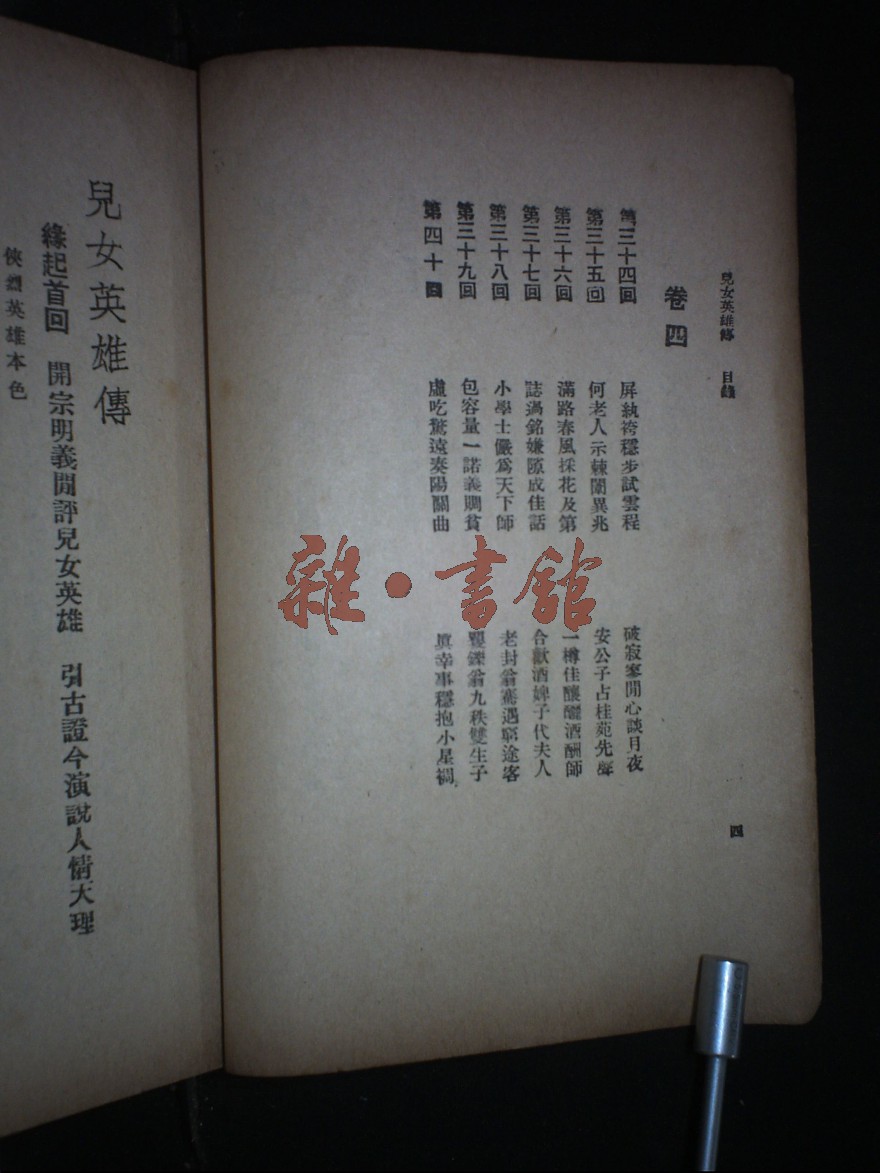 兒女英雄傳 目錄 四
卷四
第三十四回 屏紈袴穩步試雲程 破寂寥閒心談月夜
第三十五回 何老人示棘闈異兆 安公子占桂苑先聲
第三十六回 滿路春風探花及第 一樽佳釀釃酒酬師
第三十七回 誌過銘嫌隙成佳話 合歡酒婢子代夫人
第三十八回 小學士儼爲天下師 老封翁驀遇窮途客
第三十九回 包容量一諾義賙貧 矍鑠翁九秩雙生子
第四十回 虛吃驚遠奏陽關曲 眞幸事穩抱小星裯
兒女英雄傳
緣起首回 開宗明義閒評兒女英雄 引古證今演說人情天理
俠烈英雄本色
雜·書館